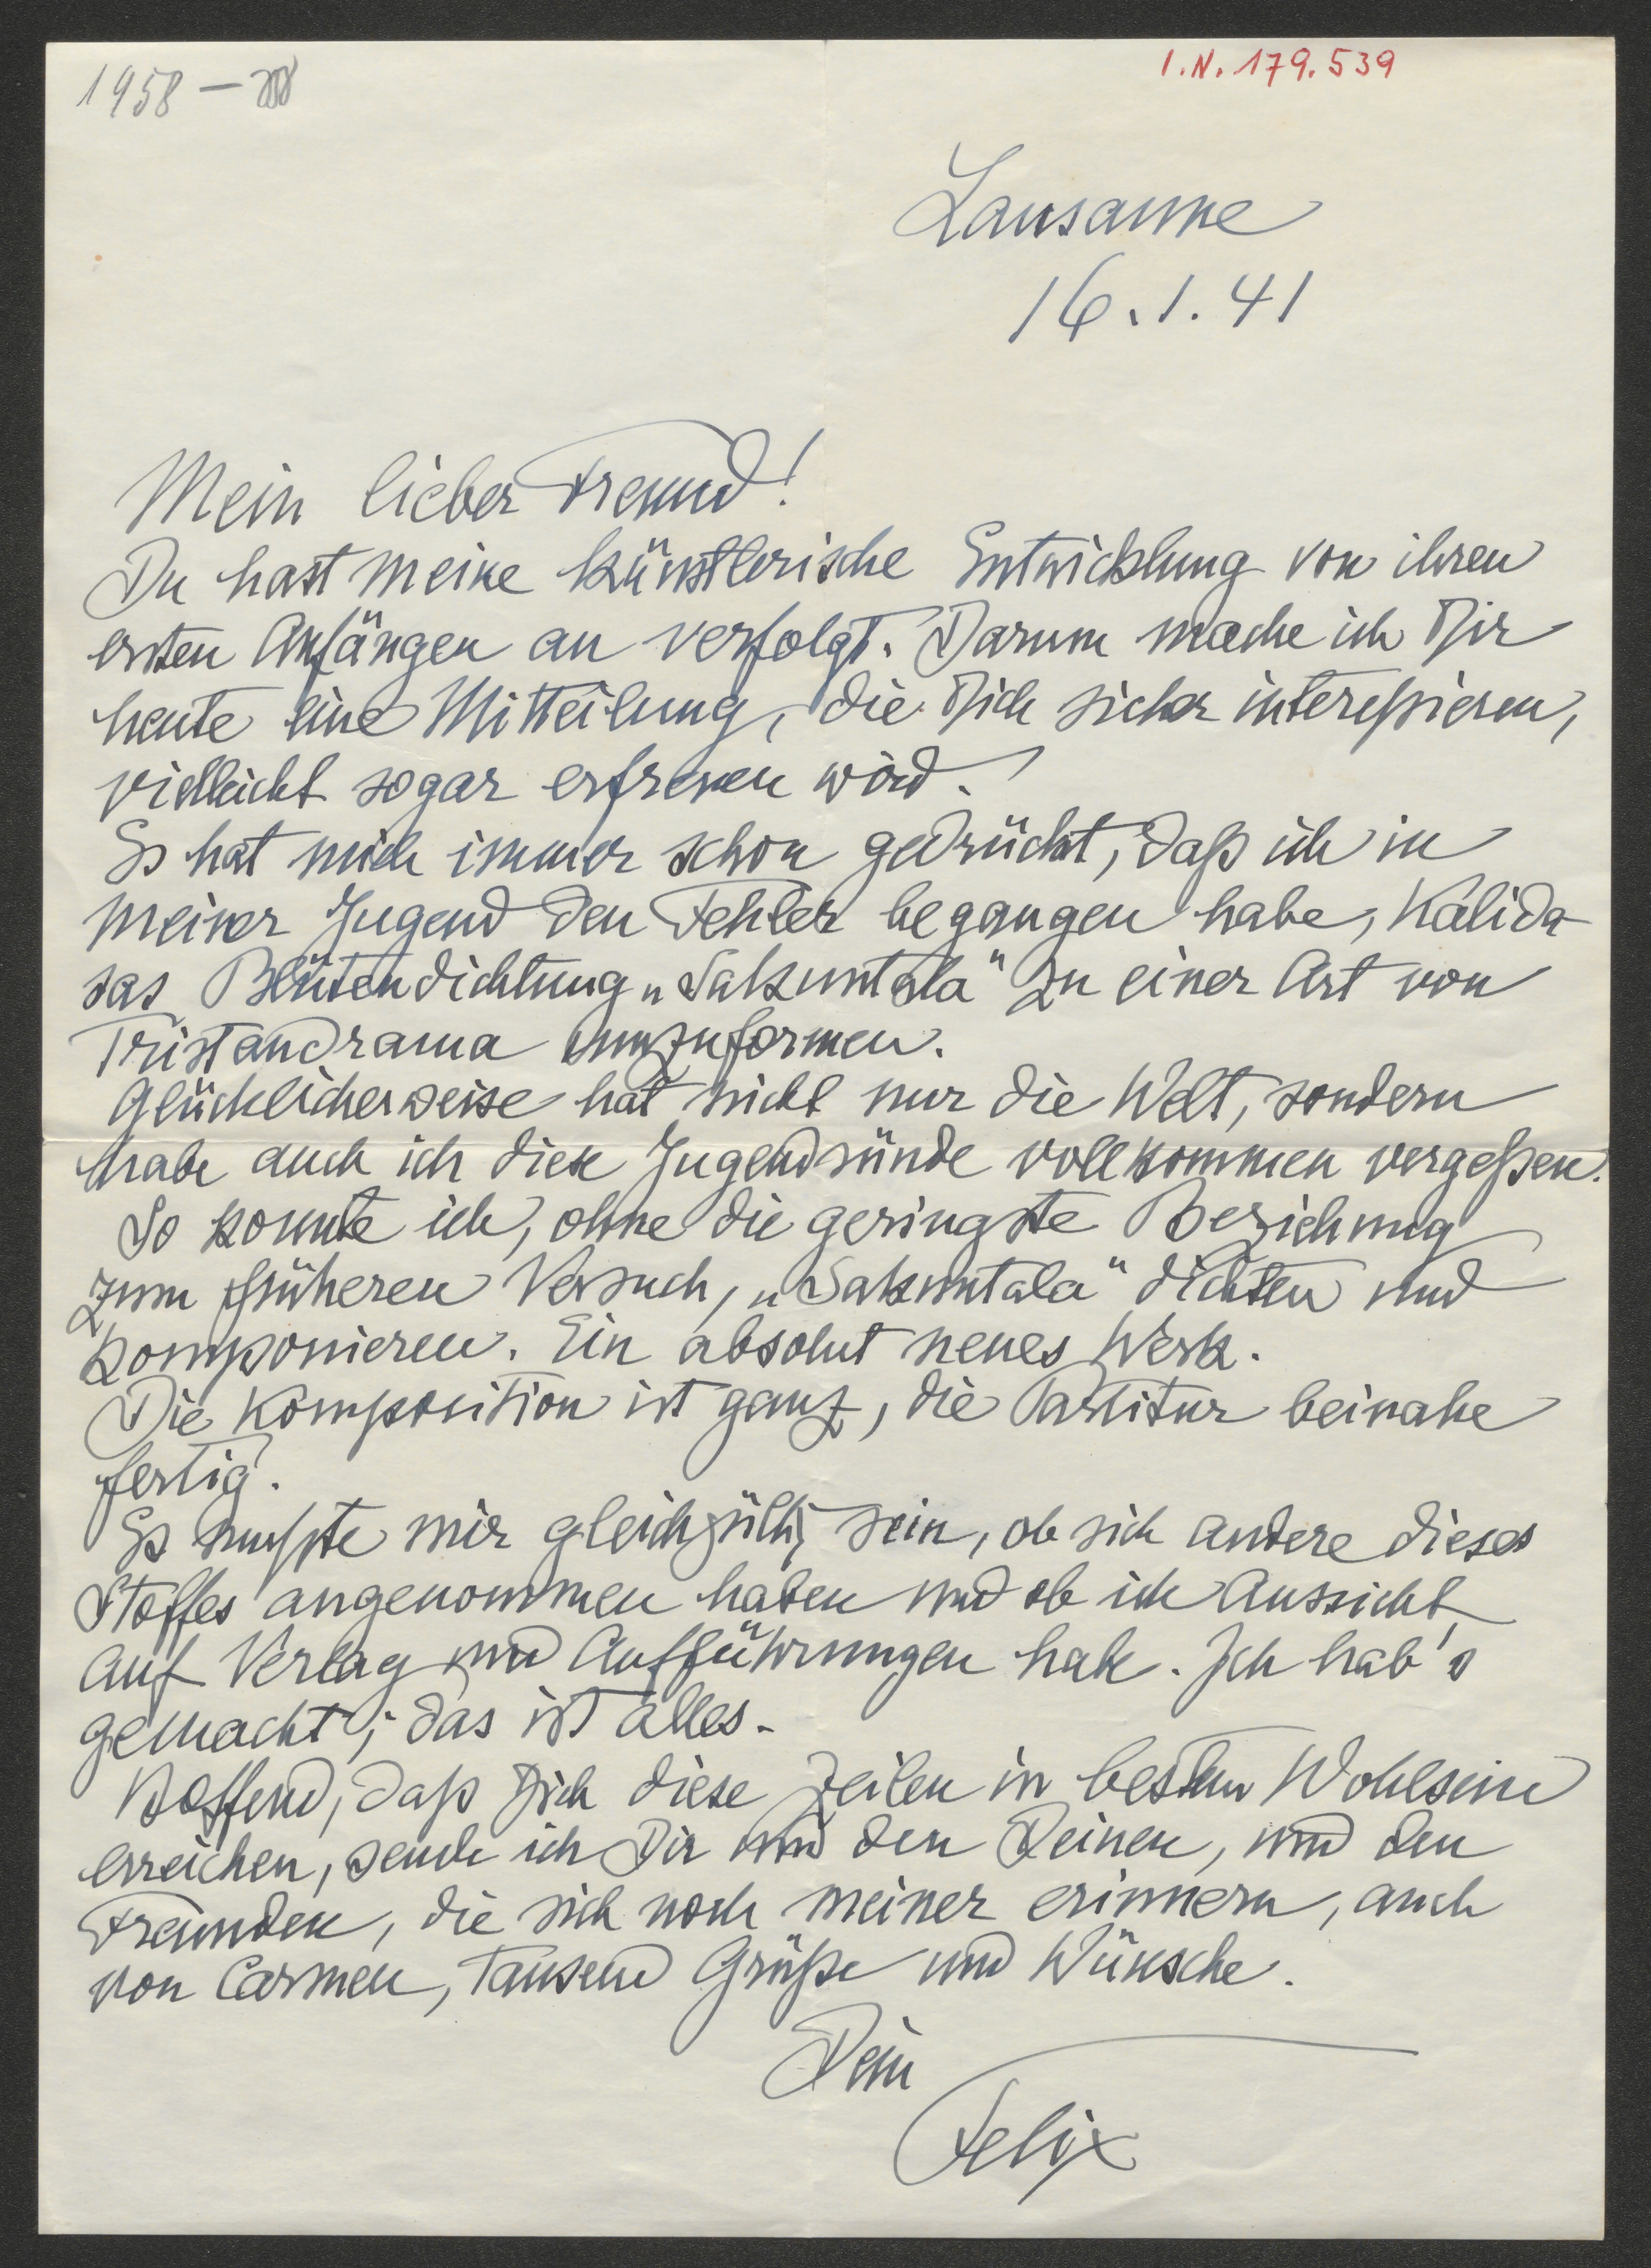 1958 —
I.N. 179.539
Lausanne
16.1.41
Mein lieber Freund!
Du hast meine künstlerische Entwicklung von ihren
ersten Anfängen an verfolgt. Darum mache ich Dir
heute eine Mitteilung, die Dich sicher interessieren,
vielleicht sogar erfreuen wird.
Es hat mich immer schon gedrückt, daß ich in
meiner Jugend den Fehler begangen habe, Kalida-
sas Blütendichtung „Sakuntala" zu einer Art von
Tristandrama umzuformen.
Glücklicherweise hat nicht nur die Welt, sondern
habe auch ich diese Jugendsünde vollkommen vergeßen.
So konnte ich, ohne die geringste Beziehung
zum früheren Versuch, „Sakuntala" dichten und
komponieren. Ein absolut neues Werk.
Die Komposition ist ganz, die Partitur beinahe
fertig.
Es mußte mir gleichgültig sein, ob sich andere dieses
Stoffes angenommen haben und ob ich Aussicht
auf Verlag und Aufführungen habe. Ich hab's
gemacht; das ist alles.
Hoffend, daß Dich diese Zeilen in bestem Wohlsein
erreichen, sende ich Dir und den Deinen, und den
Freunden, die sich noch meiner erinnern, auch
von Carmen, tausend Grüße und Wünsche.
Dein
Felix